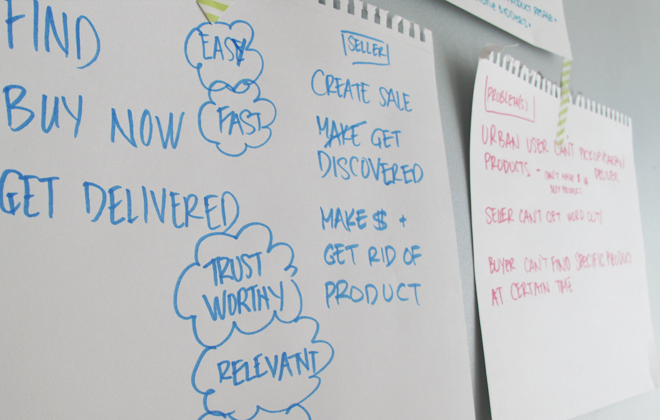 FIND
BUY NOW
GET DELIVERED
EASY
FAST
TRUST
WORTHY
RELEVANT
SELLER
CREATE SALE
MAKE GET
DISCOVERED
MAKE $ +
GET RID OF
PRODUCT
PROBLEM(S)
URBAN USER CAN'T
PRODUCTS -
SELLER CAN'T GET WORD OUT
BUYER CAN'T FIND SPECIFIC PRODUCT
AT CERTAIN TIME